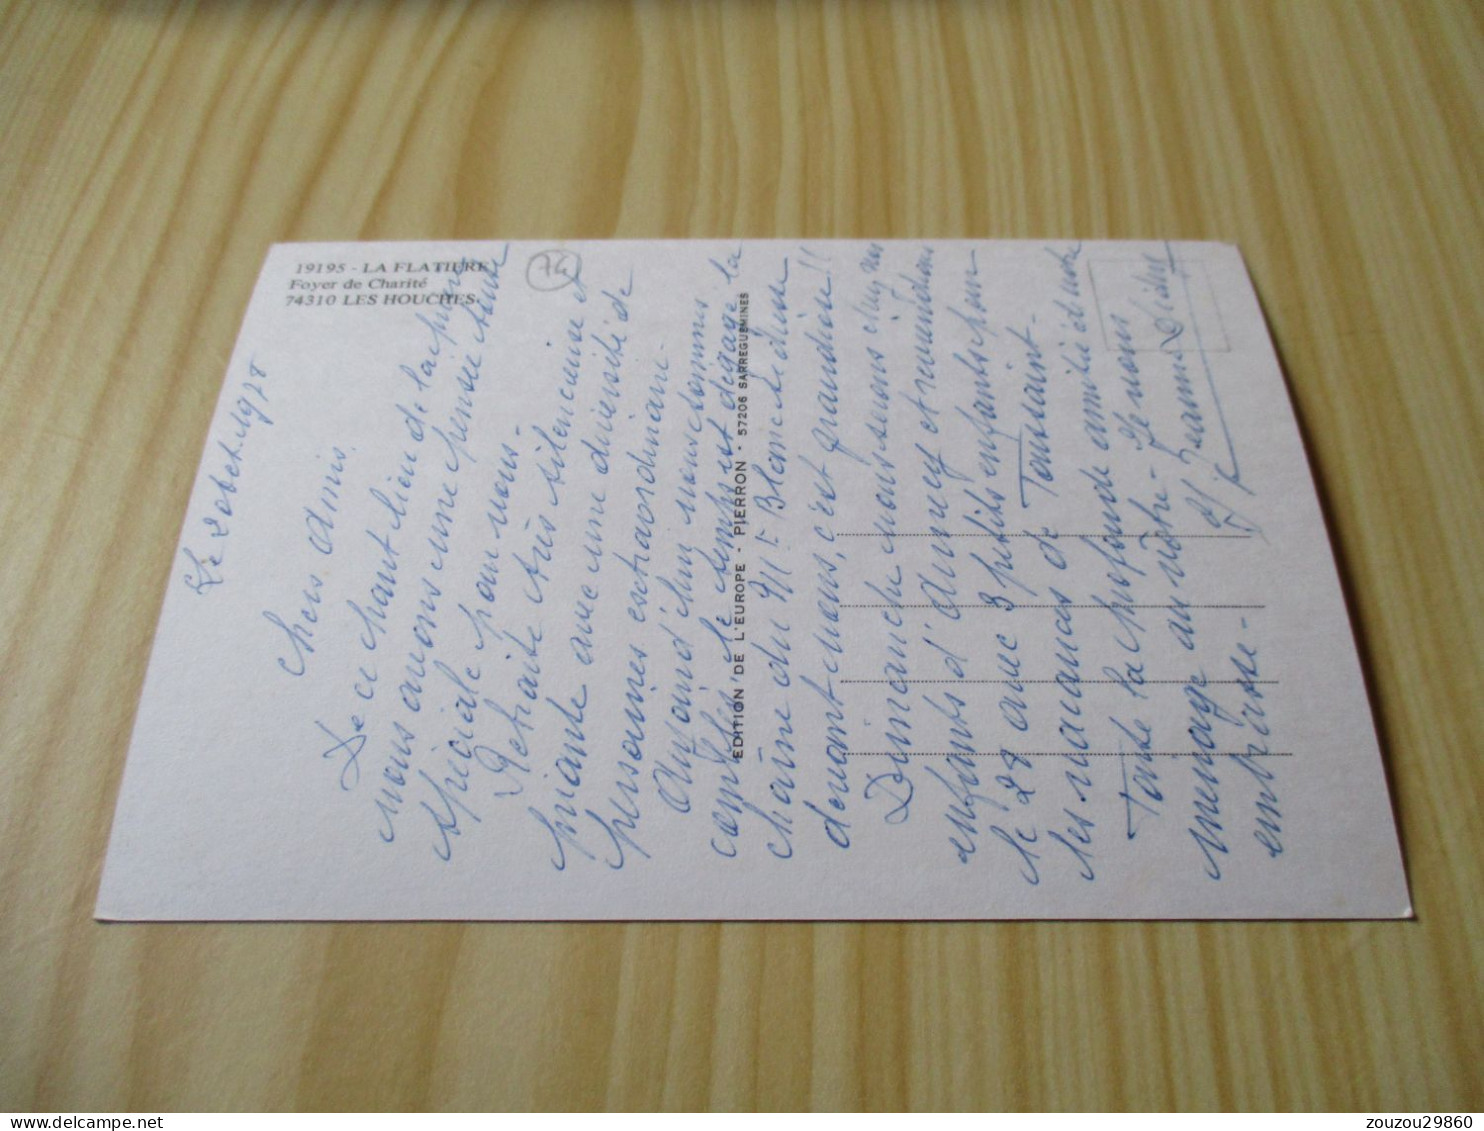 19195 - LA FLATIERE
Foyer de Charité
74310 LES HOUCHES
74
Le 2 oct. 1978
Chers amis.
De ce haut lieu de la prière
nous avons une pensée toute
spéciale pour vous.
Retraite très silencieuse et
priante avec une diversité de
personnes extraordinaire.
Aujourd'hui nous sommes
comblés, le temps est dégagé la
chaîne du Mt Blanc se dresse
devant nous, c'est grandiose !!
Dimanche nous serons chez nos
enfants d'Annecy et
le 28 avec 3 petits enfants pour
les vacances de Toussaint -
Toute la profonde amitié de notre
ménage au vôtre - Je vous
embrasse -
Jeanne
EDITION DE L'EUROPE • PIERRON • 57206 SARREGUEMINES
zouzou29860